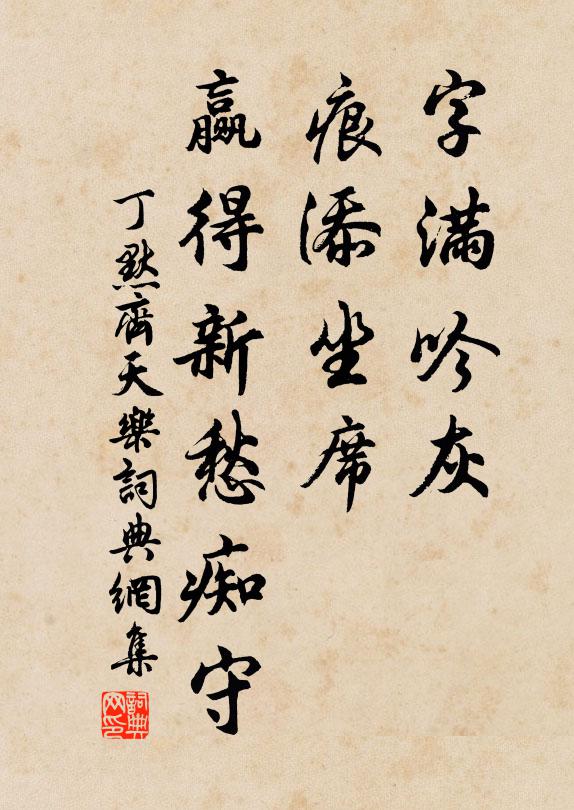 字滿吟灰
痕添坐席
贏得新愁痴守
丁默齊天樂詞典網集
詞典
网印